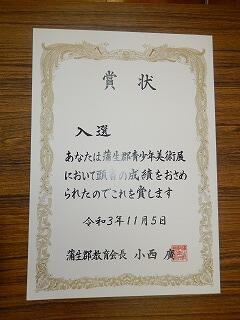 賞状
入選
あなたは蒲生郡青少年美術展
において顕著の成績をおさめ
られたのでこれを賞します
令和3年11月5日
蒲生郡教育会長 小西 廣